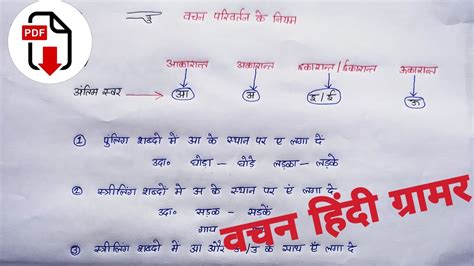 PDF
वचन परिवर्तन के नियम
आकारान्त अकारान्त इकारान्त/ईकारान्त ऊकारान्त
अंतिम स्वर → आ अ इ/ई ऊ
① पुंलिंग शब्दो में आ के स्थान पर ए लगा दें
उदा० घोडा – घोडे लड़का – लड़के
② स्त्रीलिंग शब्दों में अ के स्थान पर एं लगा दें
उदा० सड़क – सडकें
गाय
③ स्त्रीलिंग शब्दो में आ और /उ के साथ एँ लगा दे
वचन हिंदी ग्रामर